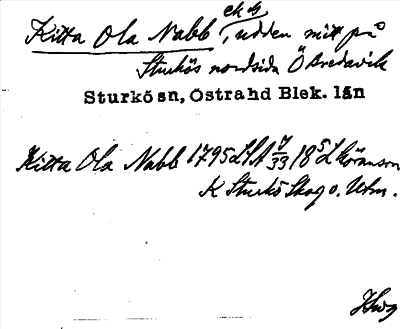 Kitta Ola Nabb, udden mitt på
Sturkös nordsida Ö Bredavik
Sturkö sn, Östra hd Blek. län
Kitta Ola Nabb 1795 LSA 7/33 18
K Sturkö Skog o. Utm.